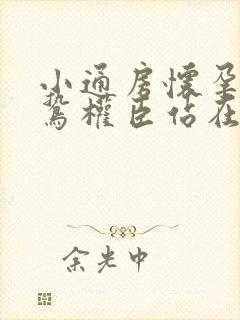 小通房懷孕
鷙權臣佔在
余光中